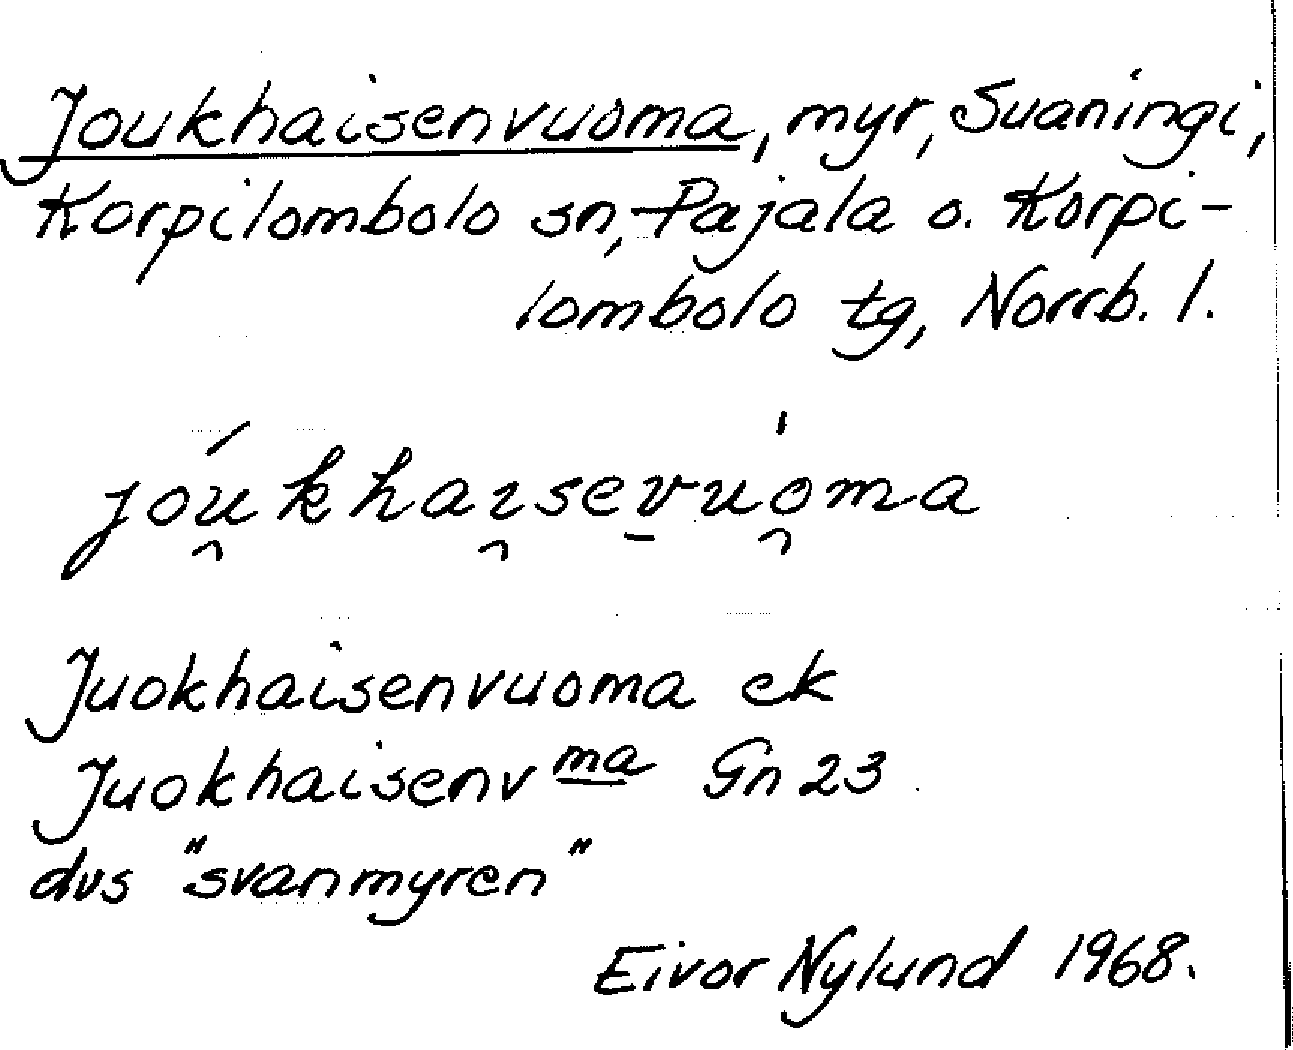 Joukhaisenvuoma, myr, Suaningi,
Korpilombolo sn, Pajala o. Korpi-
lombolo tg, Norrb. l.
jóu̯khai̯sev̱uo̯̍ma
Juokhaisenvuoma ek
Juokhaisenv ma Gn 23
dvs "svanmyren"
Eivor Nylund 1968.